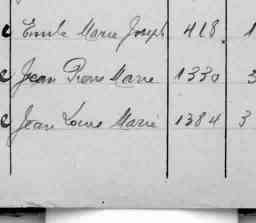 c Emile Marie Joseph 418. 1
c Jean Pierre Marie 1330 3
c Jean Louis Marie 1384 3